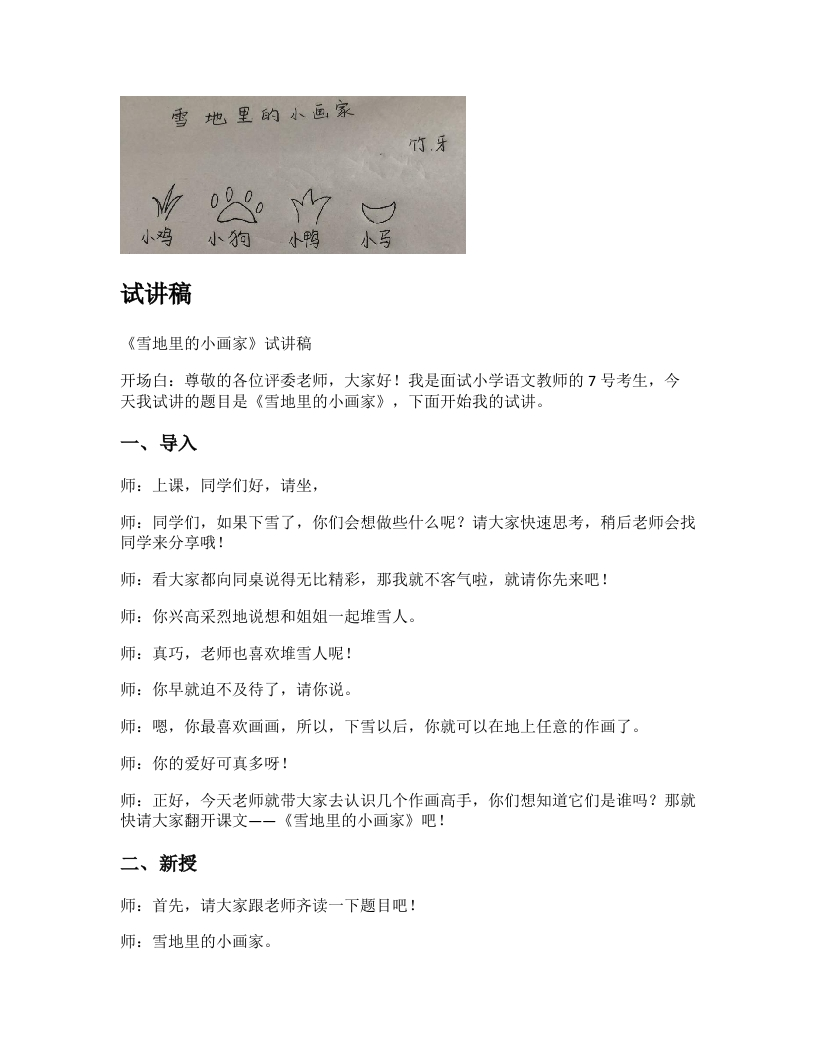 雪地里的小画家
竹.牙
小鸡 小狗 小鸭 小马
试讲稿
《雪地里的小画家》试讲稿
开场白：尊敬的各位评委老师，大家好！我是面试小学语文教师的 7 号考生，今
天我试讲的题目是《雪地里的小画家》，下面开始我的试讲。
一、导入
师：上课，同学们好，请坐，
师：同学们，如果下雪了，你们会想做些什么呢？请大家快速思考，稍后老师会找
同学来分享哦！
师：看大家都向同桌说得无比精彩，那我就不客气啦，就请你先来吧！
师：你兴高采烈地说想和姐姐一起堆雪人。
师：真巧，老师也喜欢堆雪人呢！
师：你早就迫不及待了，请你说。
师：嗯，你最喜欢画画，所以，下雪以后，你就可以在地上任意的作画了。
师：你的爱好可真多呀！
师：正好，今天老师就带大家去认识几个作画高手，你们想知道它们是谁吗？那就
快请大家翻开课文——《雪地里的小画家》吧！
二、新授
师：首先，请大家跟老师齐读一下题目吧！
师：雪地里的小画家。